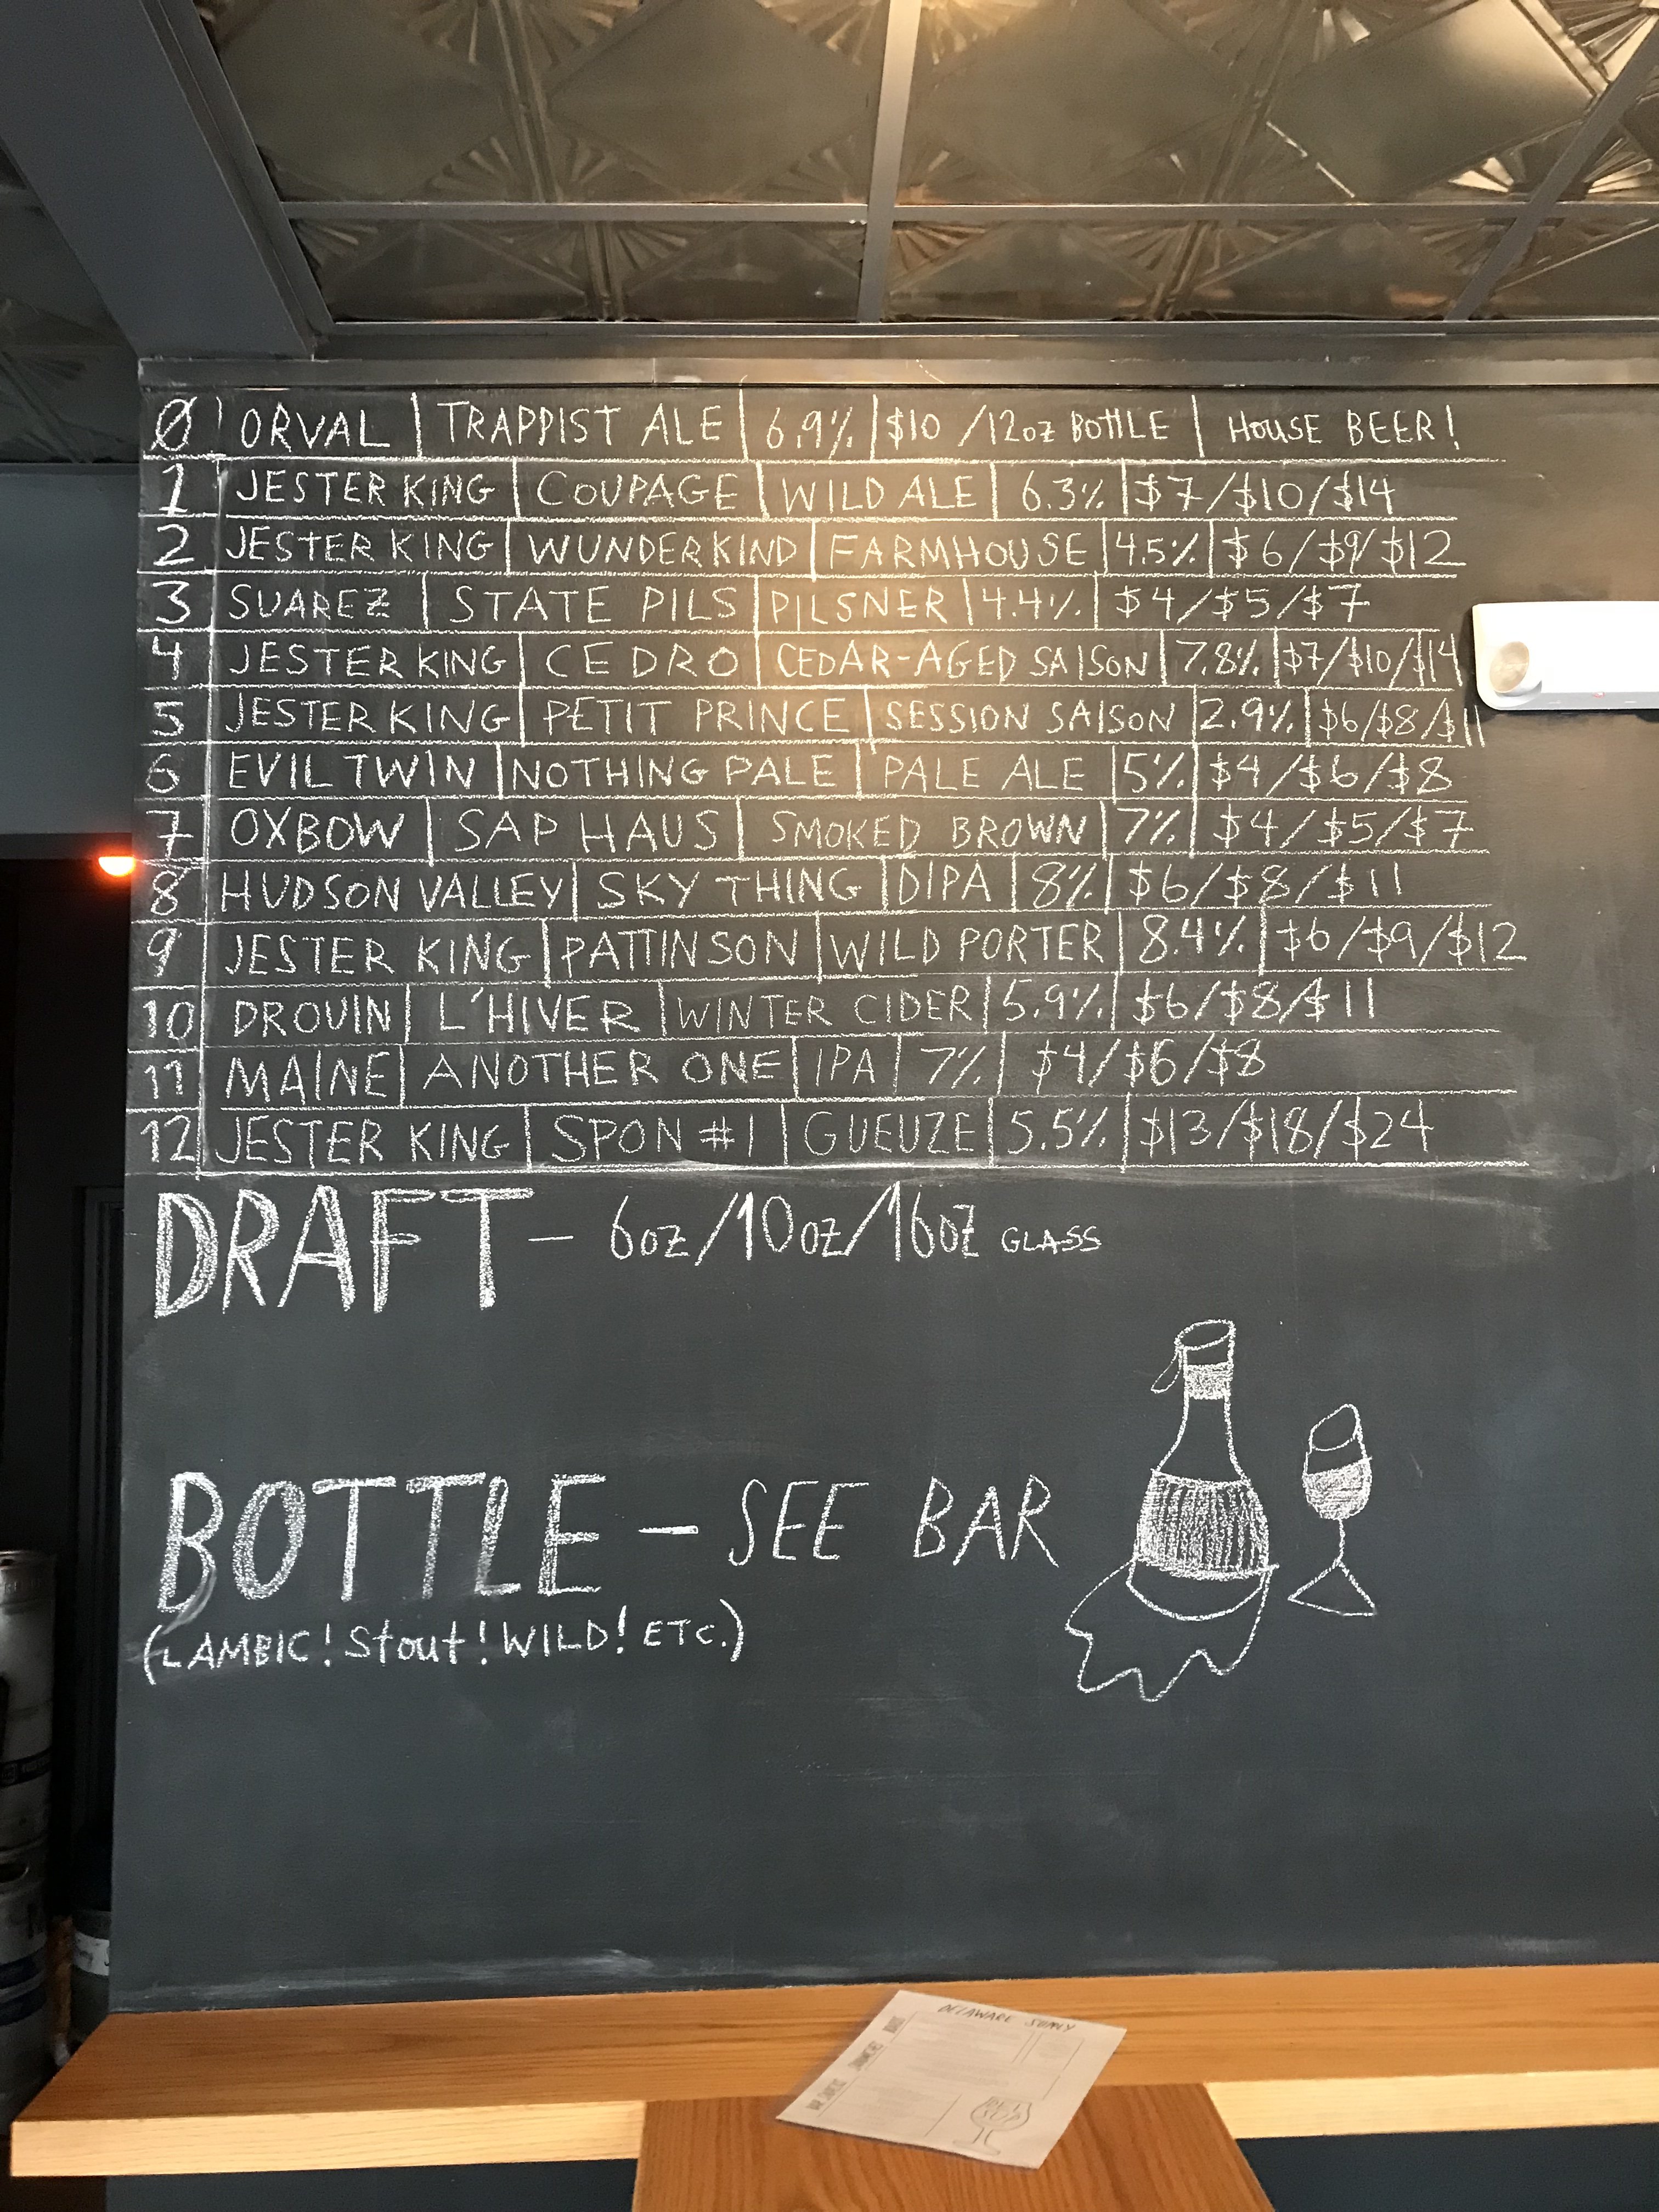 0 | ORVAL | TRAPPIST ALE | 6.9% | $10 /12oz BOTTLE | HOUSE BEER!
1 | JESTER KING | COUPAGE | WILD ALE | 6.3% | $7/$10/$14
2 | JESTER KING | WUNDERKIND | FARMHOUSE | 4.5% | $6/$9/$12
3 | SUAREZ | STATE PILS | PILSNER | 4.4% | $4/$5/$7
4 | JESTER KING | CEDRO | CEDAR-AGED SAISON | 7.8% | $7/$10/$14
5 | JESTER KING | PETIT PRINCE | SESSION SAISON | 2.9% | $6/$8/$11
6 | EVIL TWIN | NOTHING PALE | PALE ALE | 5% | $4/$6/$8
7 | OXBOW | SAP HAUS | SMOKED BROWN | 7% | $4/$5/$7
8 | HUDSON VALLEY | SKY THING | DIPA | 8% | $6/$8/$11
9 | JESTER KING | PATTINSON | WILD PORTER | 8.4% | $6/$9/$12
10 | DROUIN | L'HIVER | WINTER CIDER | 5.9% | $6/$8/$11
11 | MAINE | ANOTHER ONE | IPA | 7% | $4/$6/$8
12 | JESTER KING | SPON #1 | GUEUZE | 5.5% | $13/$18/$24
DRAFT - 6oz/10oz/16oz GLASS
BOTTLE - SEE BAR
(LAMBIC! Stout! WILD! ETC.)
DELAWARE SUPPLY